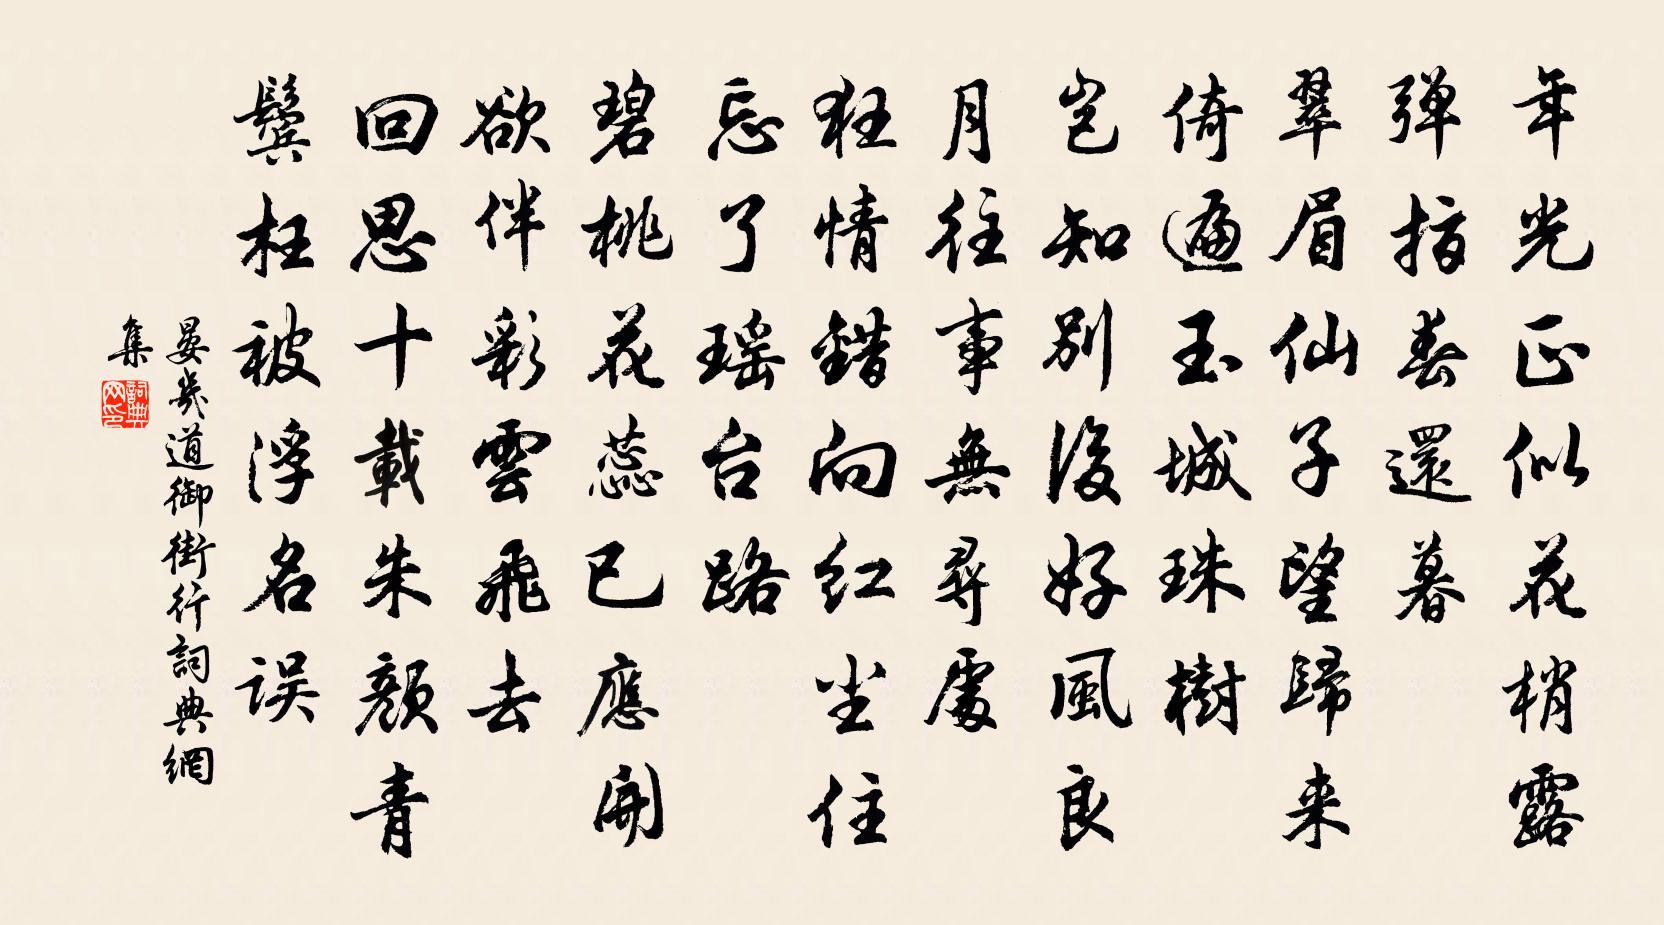 年光正似花梢露
弹指春還暮
翠眉仙子望歸来
倚遍玉城珠樹
岂知别後好風良
月往事無尋處
狂情錯向红尘住
忘了瑶台路
碧桃花蕊已應開
欲伴彩雲飛去
回思十載朱颜青
鬓枉被浮名误
晏幾道御街行詞典網
集
詞典网印